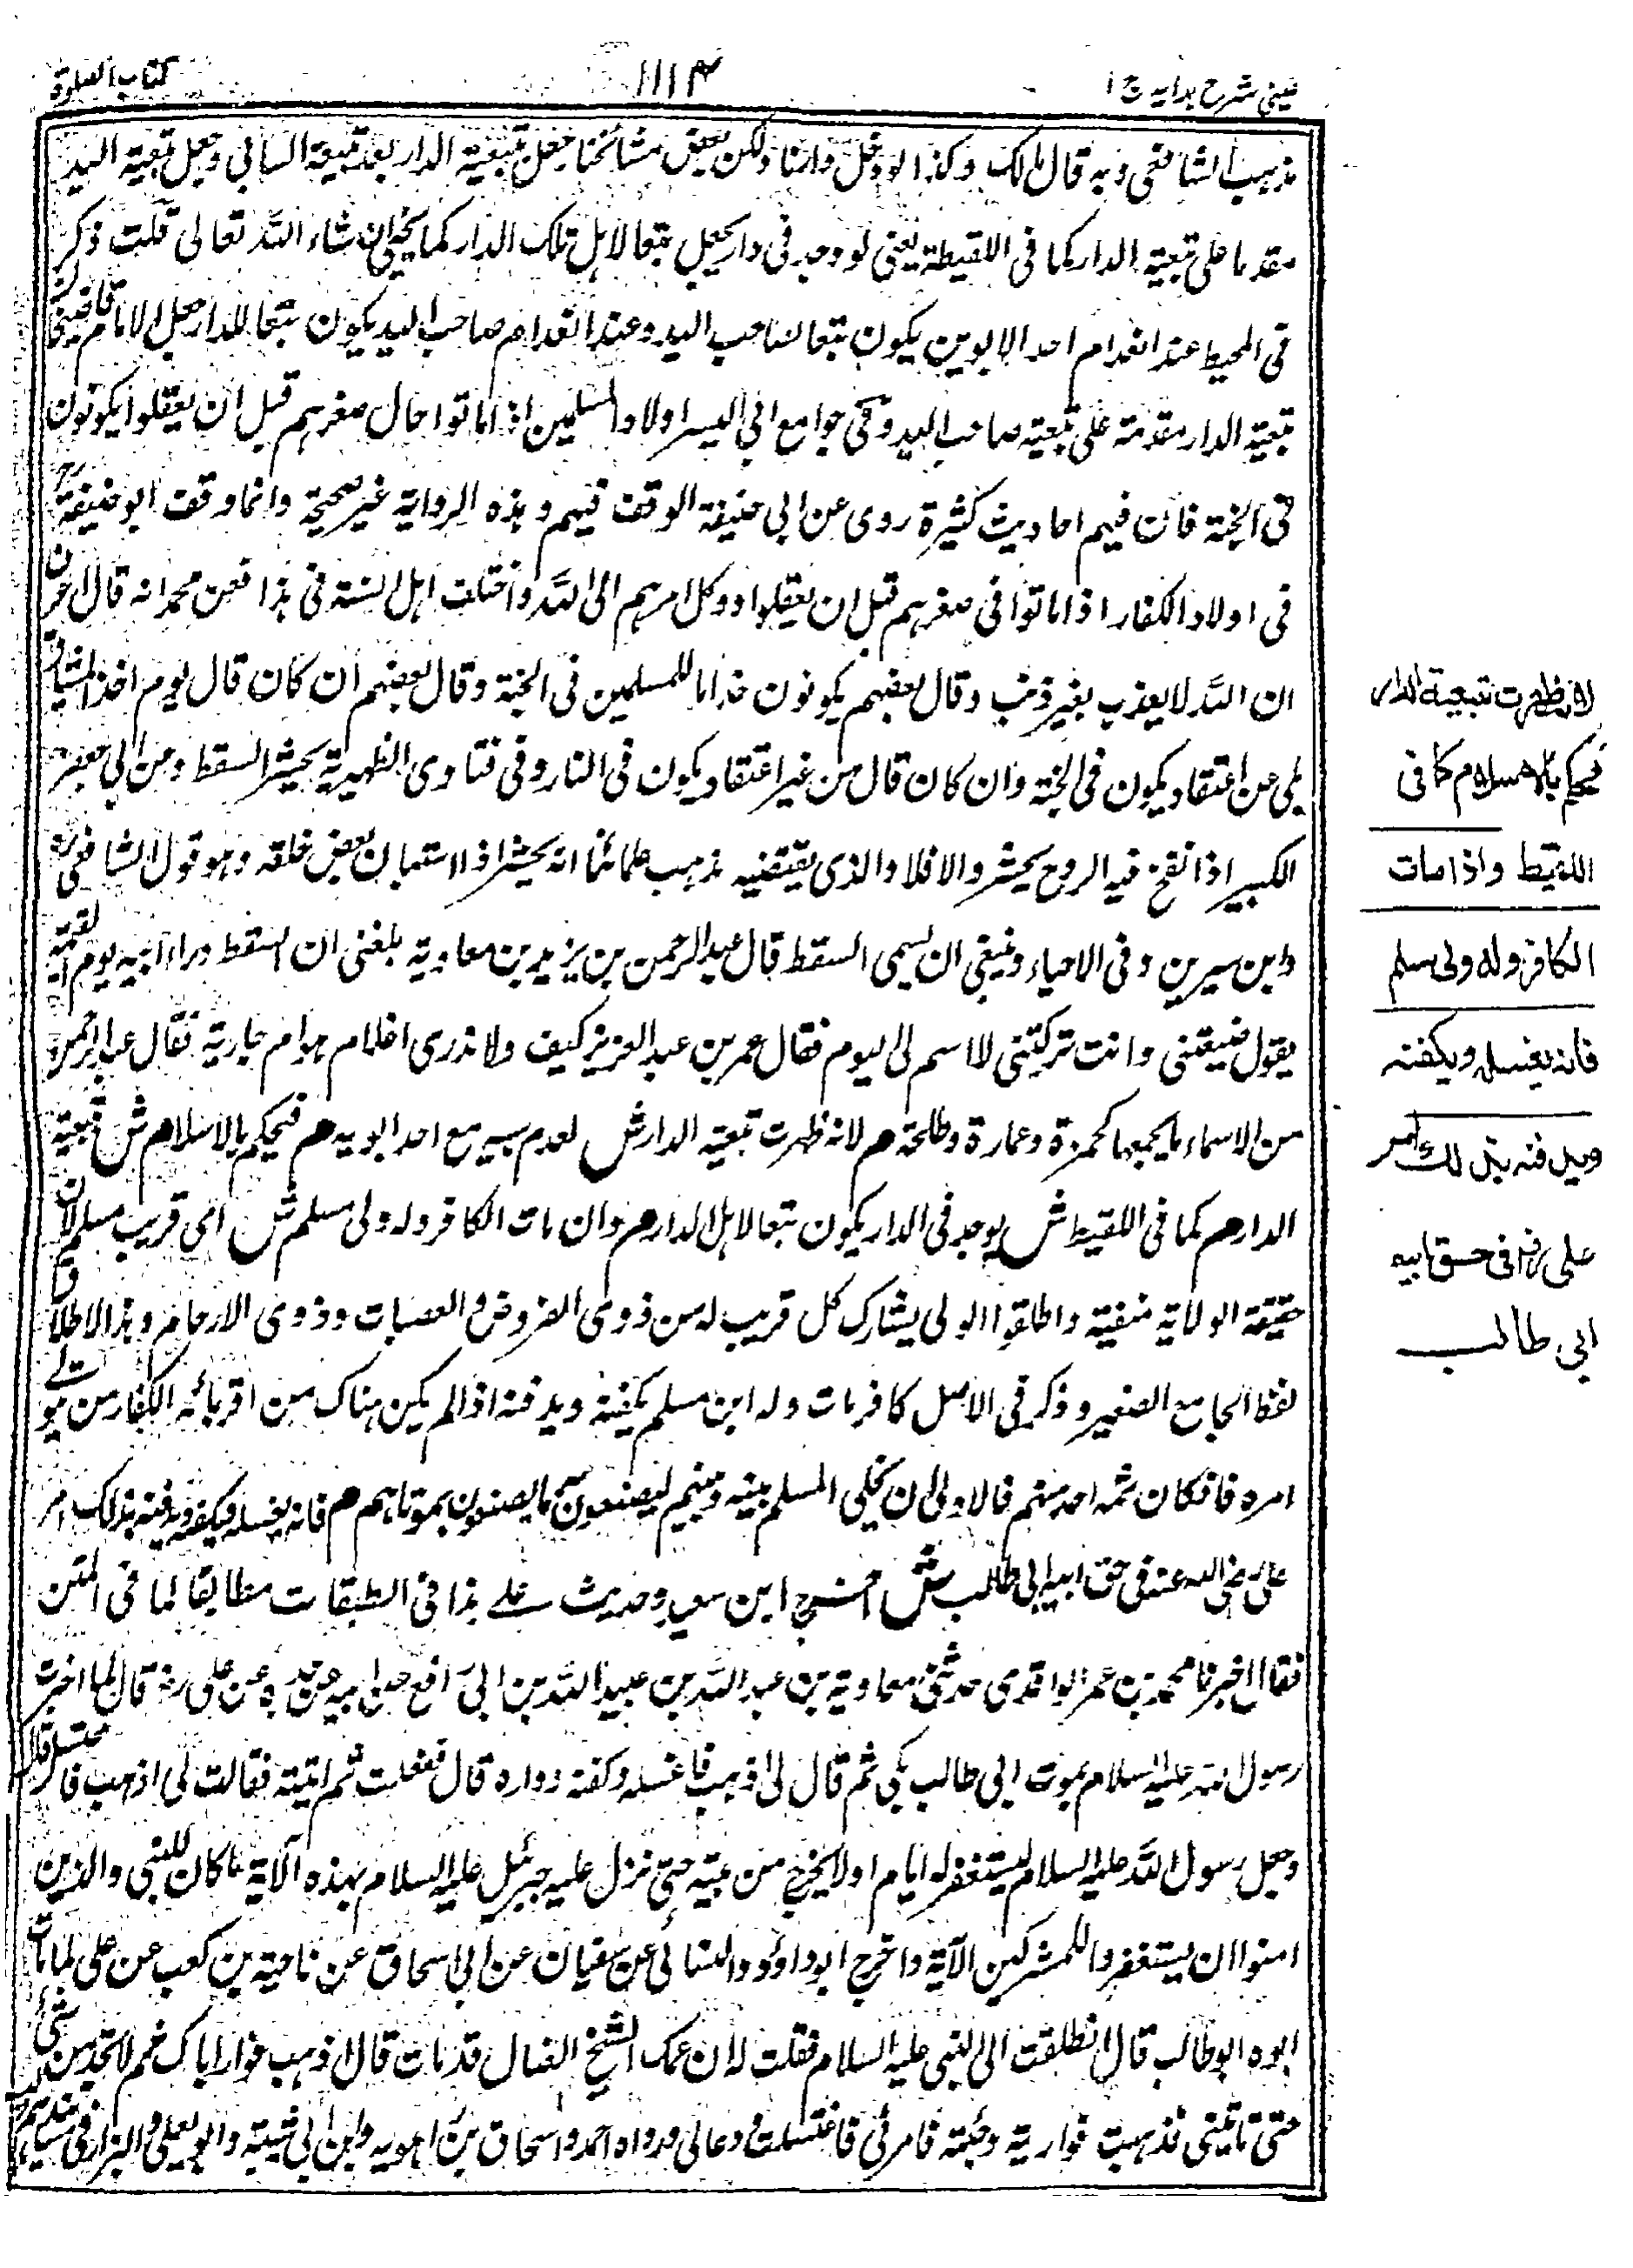 عینی شرح ہدایہ ج ۱
۱۱۱۴
کتاب الصلوة
مذهب الشافعی وبه قال مالک وکذا لو دخل دارنا ولکن بعض مشائخنا جعل تبعیة الدار بعد تبعیة السابی وجعل تبعیة الید
مقدما علی تبعیة الدار کما فی اللقیطة یعنی لو وجد فی دار یجعل تبعا لاهل تلک الدار کما یجئ ان شاء الله تعالی قلت ذکر
فی المحیط عند انعدام احد الابوین یکون تبعا لصاحب الید وعند انعدام صاحب الید یکون تبعا للدار جعل الامام قاضیخان
تبعیة الدار مقدمة علی تبعیة صاحب الید وفی جوامع ابی الیسر اولاد المسلمین اذا ماتوا حال صغرهم قبل ان یعقلوا یکونون
فی الجنة فان فیهم احادیث کثیرة روی عن ابی حنیفة الوقف فیهم وهذه الروایة غیر صحیحة وانما وقف ابو حنیفة رح
فی اولاد الکفار اذا ماتوا فی صغرهم قبل ان یعقلوا ووکل امرهم الی الله واختلف اهل السنة فی هذا فعن محمد انه قال اعرف
ان الله لا یعذب بغیر ذنب وقال بعضهم یکونون خداما للمسلمین فی الجنة وقال بعضهم ان کان قال یوم اخذ المیثاق
بلی عن اعتقاد یکون فی الجنة وان کان قال من غیر اعتقاد یکون فی النار وفی فتاوی الظهیریة یحشر السقط وعن ابی جعفر
الکبیر اذا نفخ فیه الروح یحشر والا فلا والذی یقتضیه مذهب علمائنا انه یحشر اذا استبان بعض خلقه وهو قول الشافعی
وابن سیرین وفی الاحیاء وینبغی ان یسمی السقط قال عبد الرحمن بن یزید بن معاویة بلغنی ان السقط وراء ابیه یوم القیمة
یقول ضیعتنی وانت ترکتنی لا اسم لی الیوم فقال عمر بن عبد العزیز کیف ولا ندری اغلام هو ام جاریة فقال عبد الرحمن
من الاسماء ما یجمعها کحمزة وعمارة وطلحة م لانه ظهرت تبعیة الدار ش لعدم سبیه مع احد ابویه م فیحکم بالاسلام ش تبعیة
الدار م کما فی اللقیط ش یوجد فی الدار یکون تبعا لاهل الدار م وان مات الکافر وله ولی مسلم ش ای قریب مسلم لان
حقیقة الولایة منفیة واطلق الولی یشارک کل قریب له من ذوی الفروض والعصبات وذوی الارحام وهذا الاطلاق
لفظ الجامع الصغیر وذکر فی الاصل کافر مات وله ابن مسلم یکفنه ویدفنه اذا لم یکن هناک من اقربائه الکفار من یتولی
امره فان کان ثمه احد منهم فالاولی ان یخلی المسلم بینه وبینهم لیصنعون به ما یصنعون بموتاهم م فانه یغسله ویکفنه ویدفنه بذلک امر
علی رضی الله عنه فی حق ابیه ابی طالب ش اخرج ابن سعد وحدیث علی هذا فی الطبقات مطابقا لما فی المتن
فقال اخبرنا محمد بن عمر الواقدی حدثنی معاویة بن عبد الله بن عبید الله بن ابی رافع عن ابیه عن جده عن علی رض قال لما اخبرت
رسول الله علیه السلام بموت ابی طالب بکی ثم قال لی اذهب فاغسله وکفنه وواره قال ففعلت ثم اتیته فقال لی اذهب فاغتسل قال
وجعل رسول الله علیه السلام یستغفر له ایام او لا یخرج من بیته حتی نزل علیه جبرئیل علیه السلام بهذه الآیة ما کان للنبی والذین
امنوا ان یستغفروا للمشرکین الآیة واخرج ابو داؤد والنسائی عن سفیان عن ابی اسحاق عن ناجیة بن کعب عن علی لما مات
ابوه ابو طالب قال انطلقت الی النبی علیه السلام فقلت له ان عمک الشیخ الضال قد مات قال اذهب فوار اباک ثم لا تحدثن شیئا
حتی تأتینی فذهبت فواریته وجئته فامرنی فاغتسلت ودعا لی ورواه احمد واسحاق بن راهویه وابن ابی شیبة وابو یعلی والبزار فی
لانه ظهرت تبعیة الدار
فیحکم بالاسلام کما فی
اللقیط واذا مات
الکافر وله ولی مسلم
فانه یغسله ویکفنه
ویدفنه بذلک امر
علی رض فی حق ابیه
ابی طالب